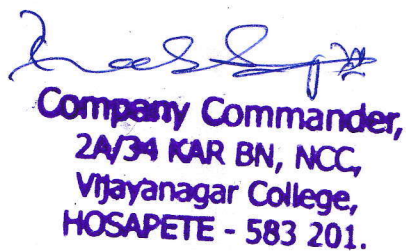 Company Commander,
2A/34 KAR BN, NCC,
Vijayanagar College,
HOSAPETE - 583 201.